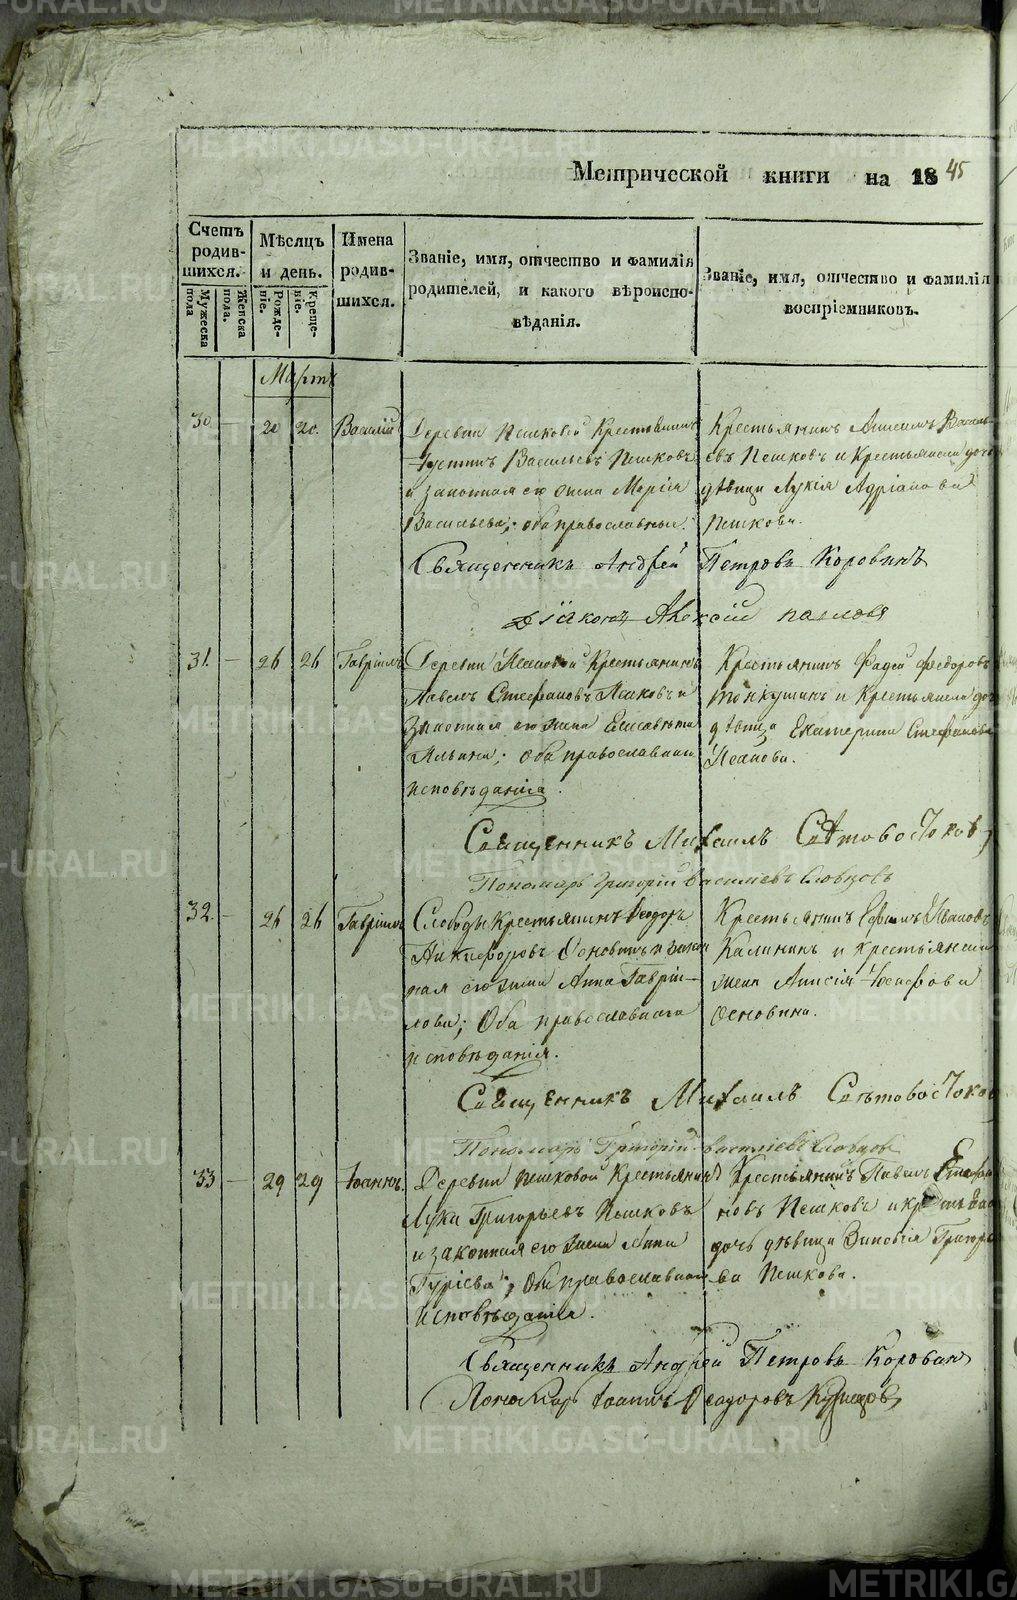 Метрической книги на 1845
Счетъ родив-шихся.
Мужеска пола
Женска пола.
Мѣсяцъ и день.
Рожде-ніе.
Креще-ніе.
Имена родив-шихся.
Званіе, имя, отчество и фамилія родителей, и какого вѣроиспо-вѣданія.
Званіе, имя, отчество и фамилія воспріемниковъ.
Мартъ
30 — 20 20. Василій
Деревни Пешковой Крестьянинъ
Іустинъ Васильевъ Пешковъ
и законная его жена Марія
Васильева; оба православные.
Крестьянинъ Василь-
евъ Пешковъ и Крестьянская дочь
дѣвица Лукія Адріанова
Пешкова.
Священникъ Андрей Петровъ Коровинъ
Діаконъ Алексій Павловъ
31. — 26 26 Гавріилъ
Деревни Крестьянинъ
Павелъ Стефановъ и
Законная его жена Елисавета
Ильина; оба православнаго
исповѣданія.
Крестьянинъ Фадей Федоровъ
и Крестьянская дочь
дѣвица Екатерина Стефанова
Исакова.
Священникъ Михаилъ Свѣтовостоковъ
Пономарь Григорій Васильевъ Словцовъ
32. — 26 26 Гавріилъ
Слободы Крестьянинъ Ѳеодоръ
Никифоровъ Основинъ и закон
ная его жена Анна Гаврі-
лова; Оба православнаго
исповѣданія.
Крестьянинъ Ефимъ Ивановъ
Калининъ и Крестьянская
жена Анисія Іосифова
Основина.
Священникъ Михаилъ Свѣтовостоков
Пономарь Григорій Васильевъ Словцовъ
33 — 29 29 Іоаннъ.
Деревни Пешковой Крестьянинъ
Лука Григорьевъ Пешковъ
и законная его жена Анна
Гуріева; Оба православнаго
Исповѣданія.
Крестьянинъ Павелъ Стефа
новъ Пешковъ и
дочь дѣвица Зиновія Григорье
ва Пешкова.
Священникъ Андрей Петровъ Коровинъ
Пономарь Іоаннъ Ѳеодоровъ
METRIKI.GASO-URAL.RU